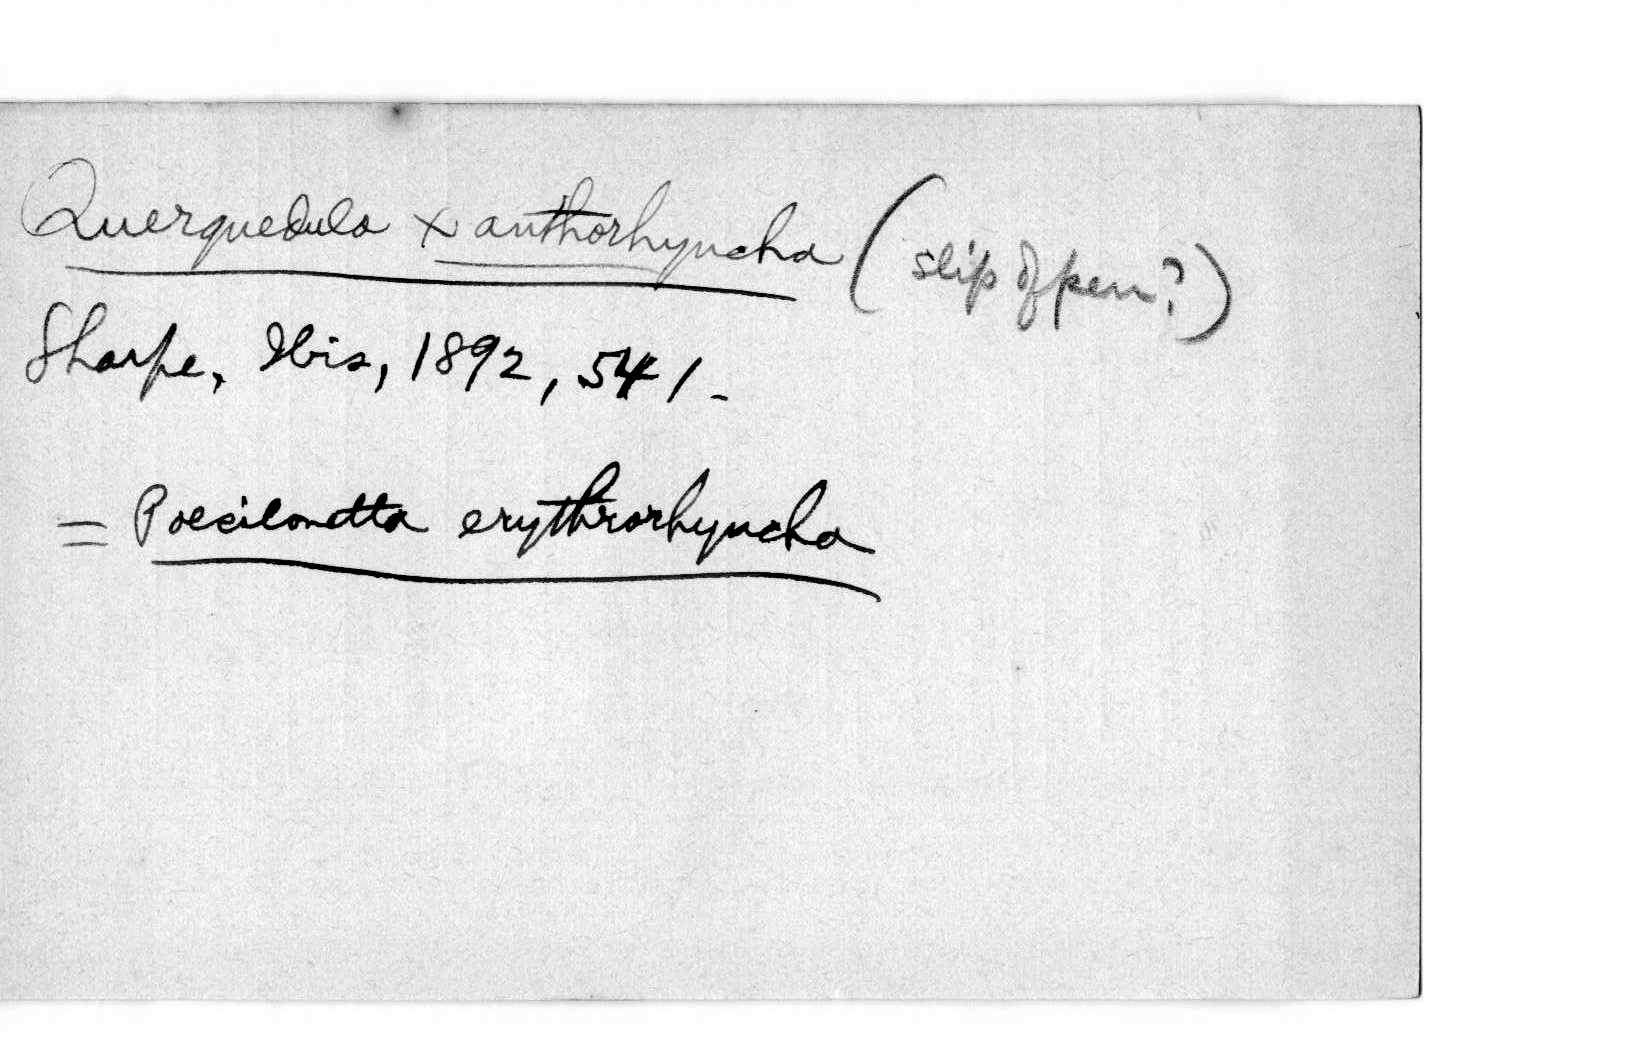 Querquedula xanthorhyncha (slip of pen?)
Sharpe, Ibis, 1892, 541.
= Poecilonetta erythrorhyncha